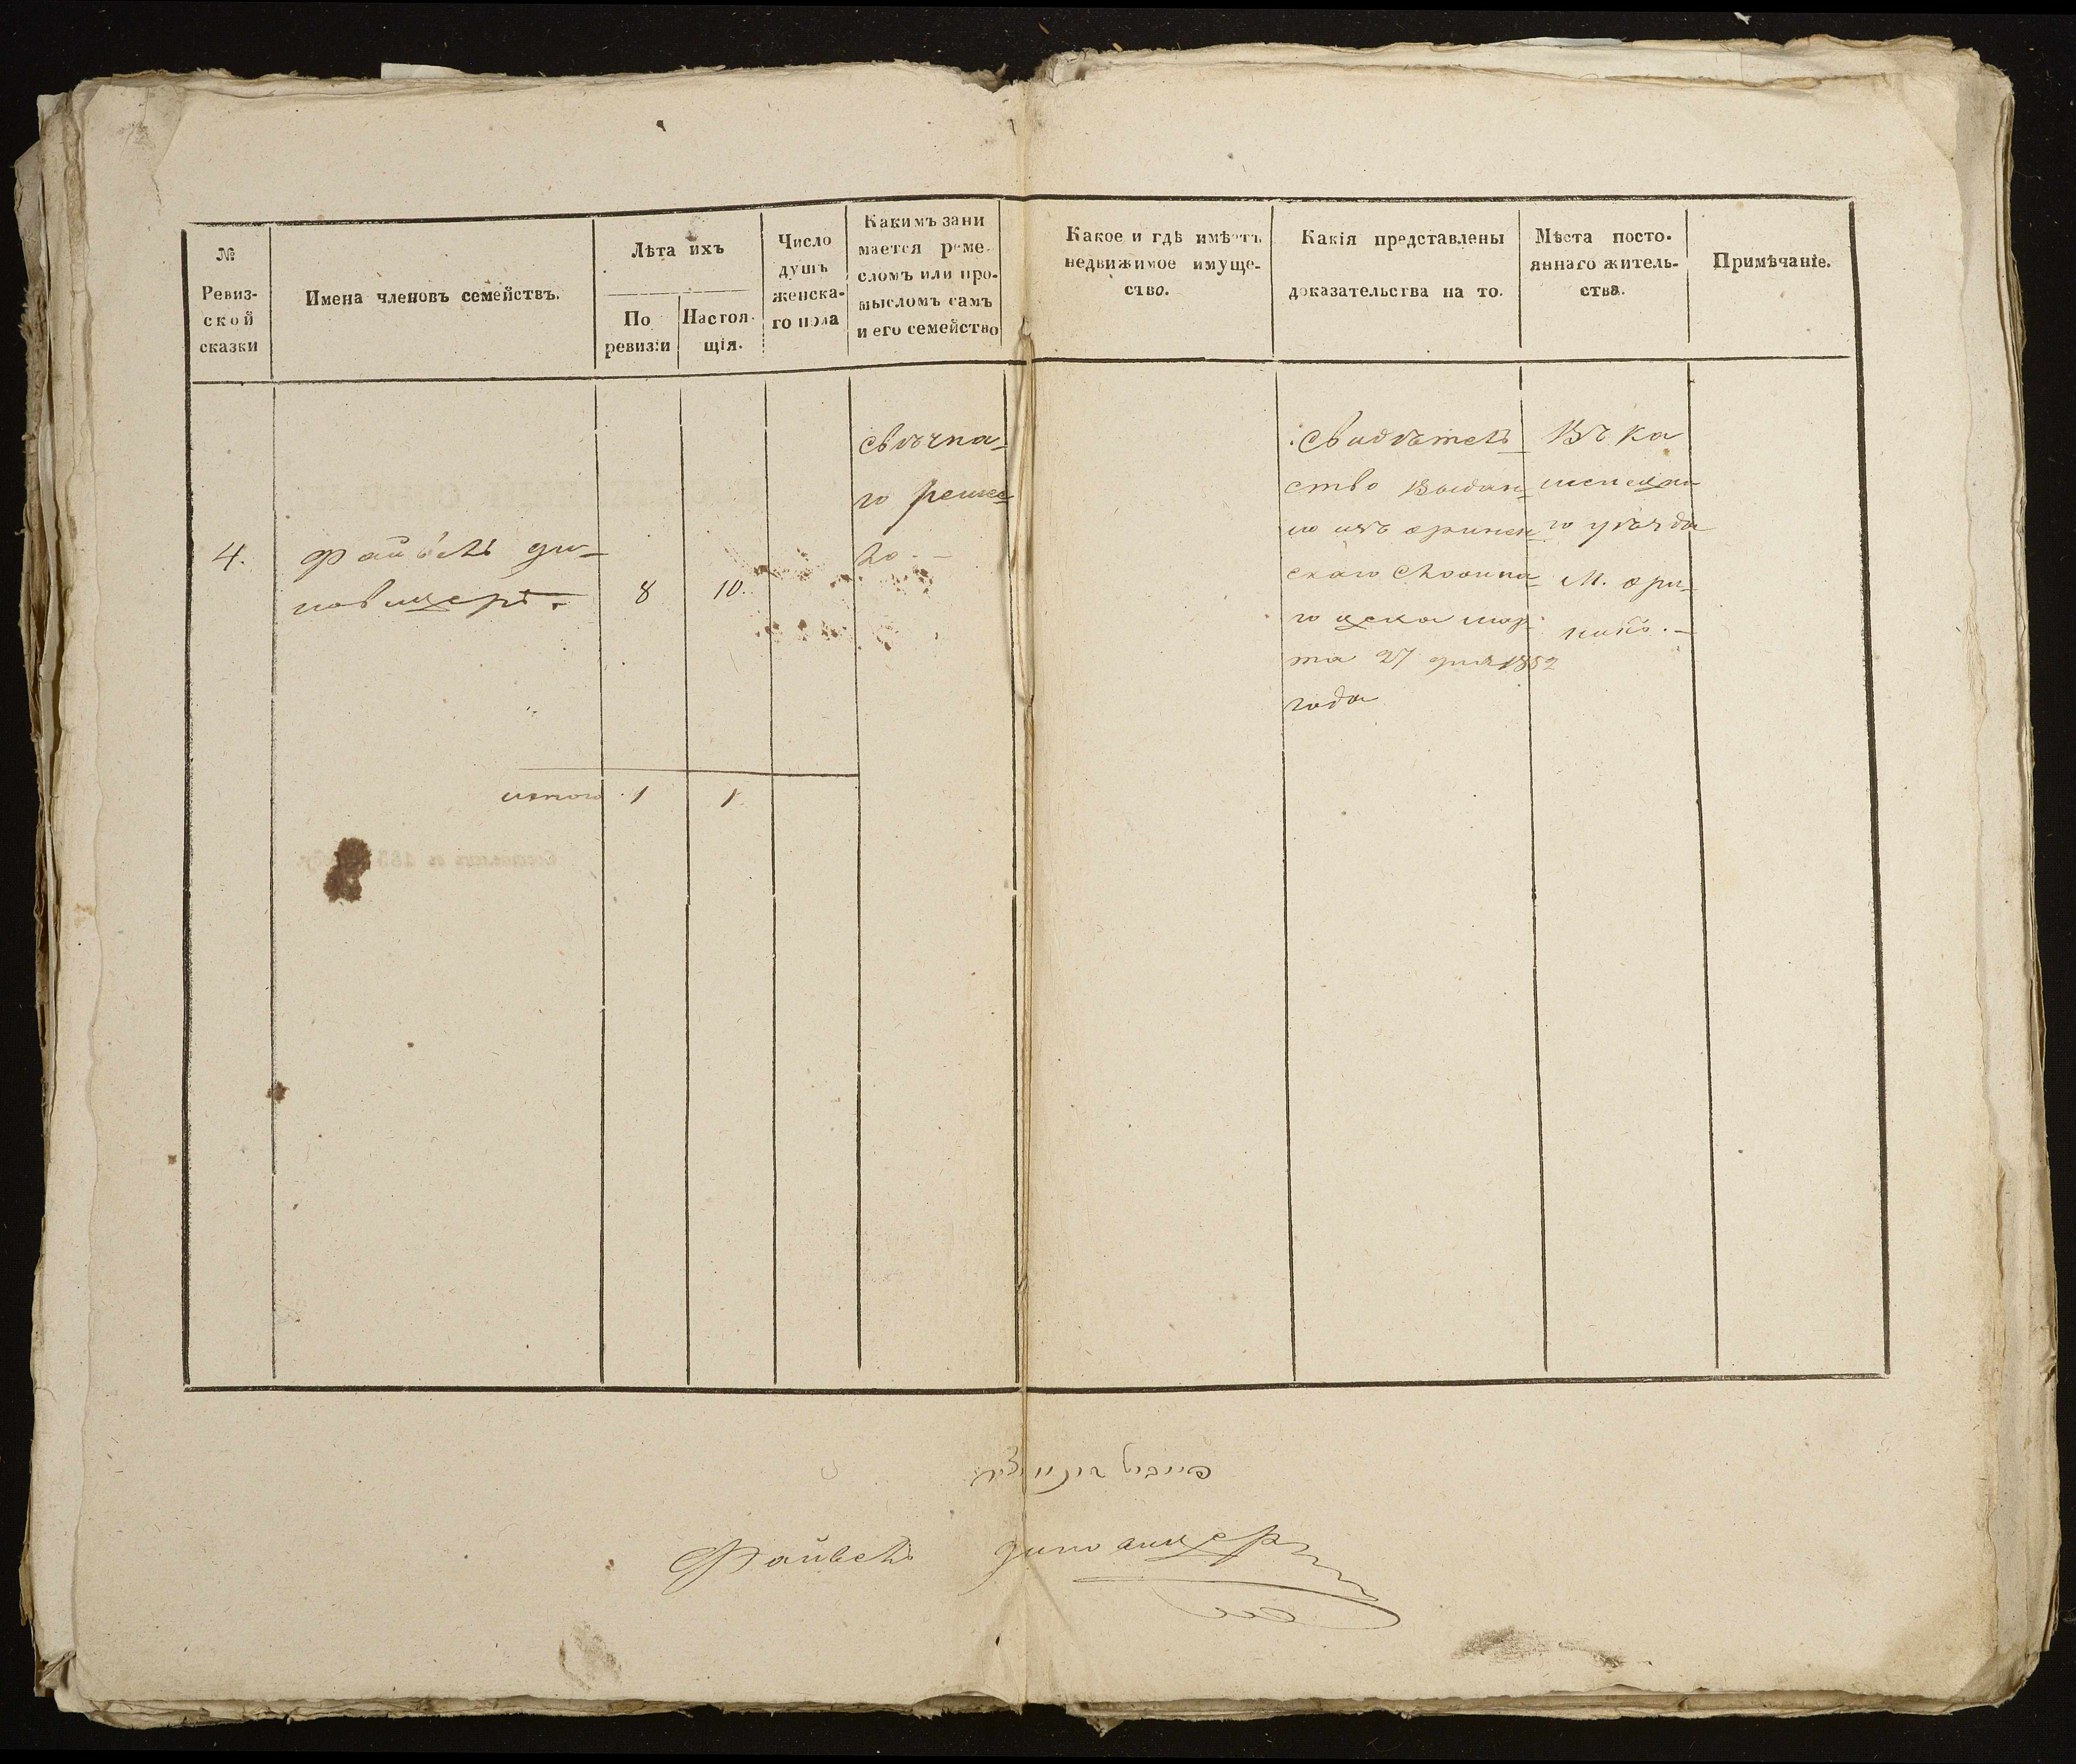 №
Ревиз-
ской
сказки
Имена членовъ семействъ.
Лѣта ихъ
По
ревизіи
Настоя-
щія.
Число
душъ
женска-
го пола
Какимъ зани
мается реме-
сломъ или про-
мысломъ самъ
и его семейство
Какое и гдѣ имѣетъ
недвижимое имуще-
ство.
Какія представлены
доказательства на то.
Мѣста посто-
яннаго житель-
ства.
Примѣчаніе.
4.
Файвель ди-
новицеръ.
8
10.
свѣчна-
го ремес
ло
Свидѣтель
ство выдан-
но изъ оринен-
скаго
го цеха мар-
та 27 дня 1852
года
Въ ка
менецко
го уѣзда
М. ори-
нинѣ.
итого
1
1
Файвель диновицеръ